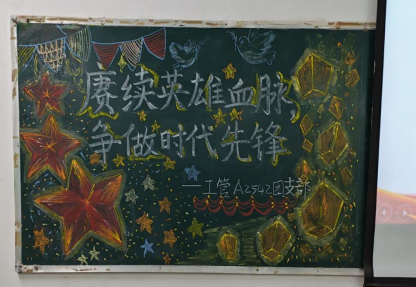 赓续英雄血脉,
争做时代先锋
——工管A2542团支部